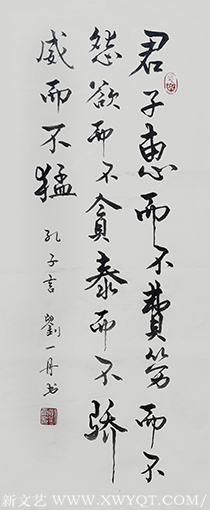 君子惠而不費劳而不
怨欲而不貪泰而不骄
威而不猛
孔子言 劉一丹书
新文艺 WWW.XWYQT.COM/